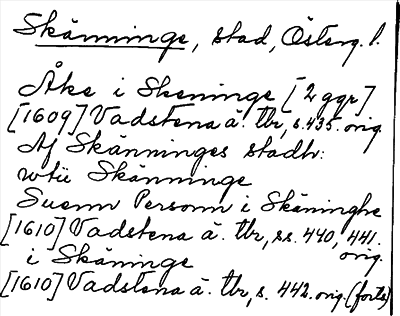 Skänninge, stad, Österg. l.
Åke i Skeninge [2 ggr]
[1609] Vadstena ä. tbr, s. 435. orig.
Af Skänninges stadh:
wtū Skänninge
Suenn Personn i Skäninghe
[1610] Vadstena ä. tbr, ss. 440, 441.
i Skäninge orig.
[1610] Vadstena ä. tbr, s. 442. orig. (forts)